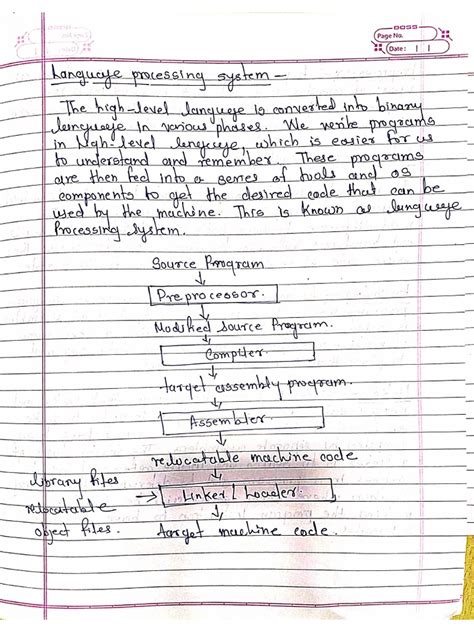 DOSS
Page No.
Date: | |
Language processing system -
The high-level language is converted into binary
language in various phases. We write programs
in high-level language, which is easier for us
to understand and remember. These programs
are then fed into a series of tools and OS
components to get the desired code that can be
used by the machine. This is known as language
Processing System.
Source Program
Preprocessor.
Modified Source Program.
Compiler.
target assembly program.
Assembler.
relocatable machine code
library files
Linker / Loader.
relocatable
object files.
target machine code.